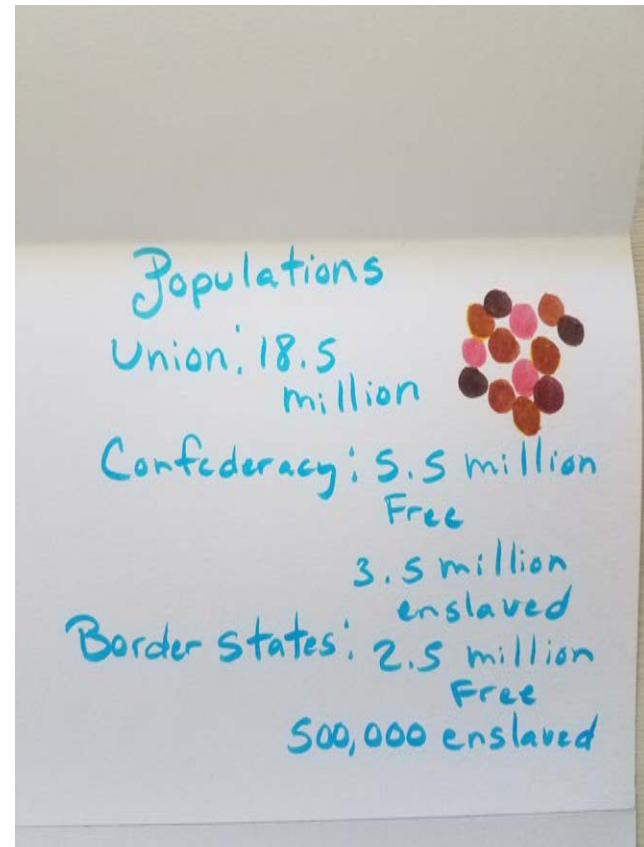 Populations
Union: 18.5
million
Confederacy: 5.5 million
Free
3.5 million
enslaved
Border states: 2.5 million
Free
500,000 enslaved